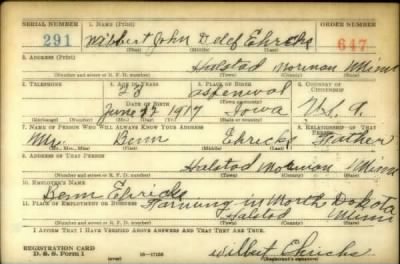 SERIAL NUMBER 1. NAME (Print) ORDER NUMBER
291 Wilbert John Detlef Ehricks 647
(First) (Middle) (Last)
2. ADDRESS (Print)
Halstad Norman Minn
(Number and street or R. F. D. number) (Town) (County) (State)
3. TELEPHONE 4. AGE IN YEARS 5. PLACE OF BIRTH 6. COUNTRY OF CITIZENSHIP
23
DATE OF BIRTH
June 22 1917 Iowa U.S.A.
(Exchange) (Number) (Mo.) (Day) (Yr.) (State or country)
7. NAME OF PERSON WHO WILL ALWAYS KNOW YOUR ADDRESS 8. RELATIONSHIP OF THAT PERSON
Mr. Benn Ehricks Father
(Mr., Mrs., Miss) (First) (Middle) (Last)
9. ADDRESS OF THAT PERSON
Halstad Norman Minn
(Number and street or R. F. D. number) (Town) (County) (State)
10. EMPLOYER'S NAME
Benn Ehricks
11. PLACE OF EMPLOYMENT OR BUSINESS
Farming in North Dakota
Halstad Minn
(Number and street or R. F. D. number) (Town) (County) (State)
I AFFIRM THAT I HAVE VERIFIED ABOVE ANSWERS AND THAT THEY ARE TRUE.
REGISTRATION CARD
D. S. S. Form 1 (over) Wilbert Ehricks
(Registrant's signature)